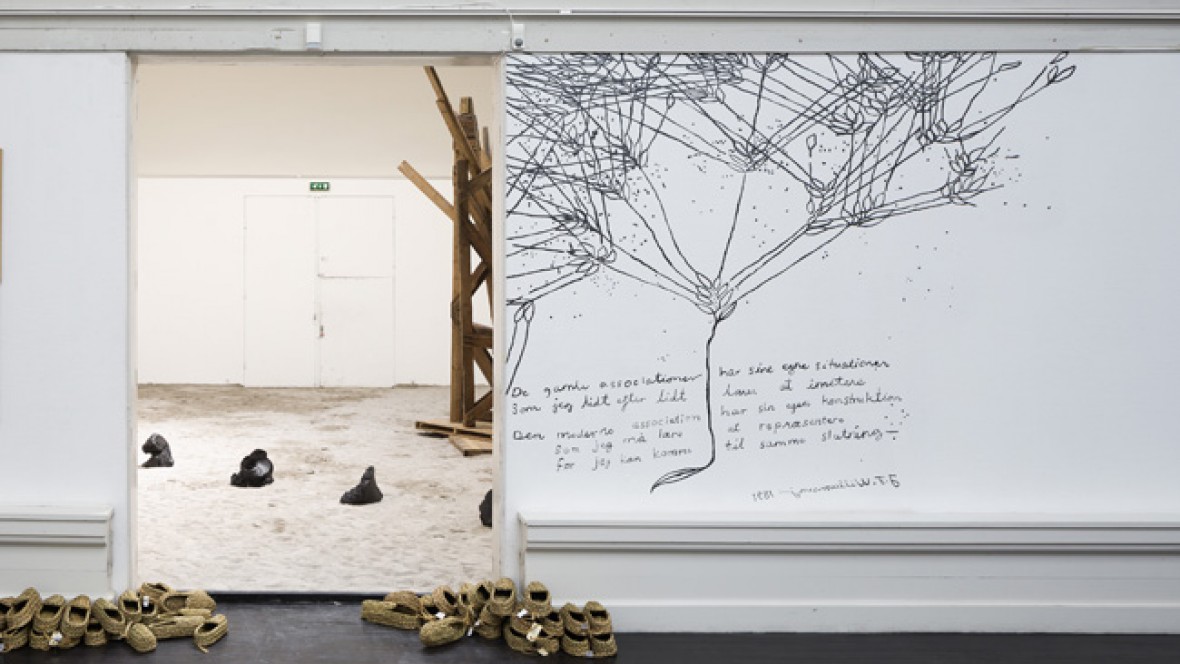 De gamle associationer har sine egne situationer
Som jeg lidt efter lidt lærer at imitere
Den moderne association har sin egen konstruktion
Som jeg må lære at repræsentere
før jeg kan komme til samme slutning—